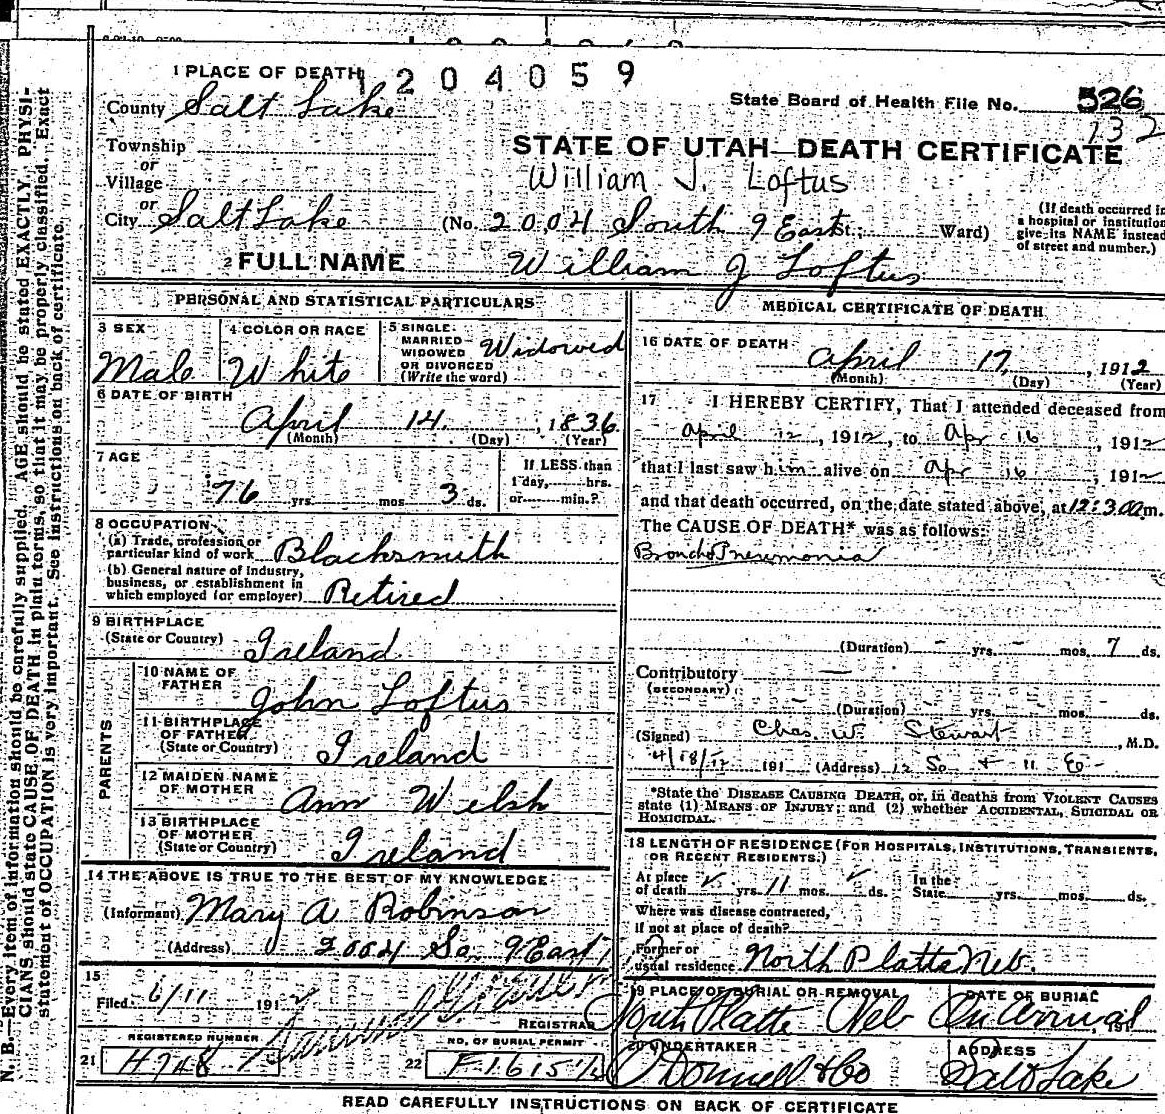 1204059
1 PLACE OF DEATH
County Salt Lake
State Board of Health File No. 526
132
Township
or
Village
or
STATE OF UTAH—DEATH CERTIFICATE
William J. Loftus
City Salt Lake (No. 2004 South 9 East St.; Ward)
(If death occurred in a hospital or institution give its NAME instead of street and number.)
2 FULL NAME William J Loftus
PERSONAL AND STATISTICAL PARTICULARS
3 SEX
Male
4 COLOR OR RACE
White
5 SINGLE
MARRIED
WIDOWED
OR DIVORCED
(Write the word)
Widowed
6 DATE OF BIRTH
April 14, 1836
(Month) (Day) (Year)
7 AGE
76 yrs. mos. 3 ds.
If LESS than
1 day, hrs.
or min.?
8 OCCUPATION
(a) Trade, profession or
particular kind of work Blacksmith
(b) General nature of industry,
business, or establishment in
which employed (or employer) Retired
9 BIRTHPLACE
(State or Country) Ireland
PARENTS
10 NAME OF
FATHER John Loftus
11 BIRTHPLACE
OF FATHER
(State or Country) Ireland
12 MAIDEN NAME
OF MOTHER Ann Welsh
13 BIRTHPLACE
OF MOTHER
(State or Country) Ireland
14 THE ABOVE IS TRUE TO THE BEST OF MY KNOWLEDGE
(Informant) Mary A Robinson
(Address) 2004 So. 9 East
15
Filed 6/11 1912
REGISTRAR
REGISTERED NUMBER
21 H748
NO. OF BURIAL PERMIT
22 F1615½
MEDICAL CERTIFICATE OF DEATH
16 DATE OF DEATH
April 17, 1912
(Month) (Day) (Year)
17 I HEREBY CERTIFY, That I attended deceased from
April 12, 1912, to Apr 16, 1912
that I last saw him alive on Apr 16, 1912
and that death occurred, on the date stated above, at 12:30 a m.
The CAUSE OF DEATH* was as follows:
Broncho Pneumonia
(Duration) - yrs. - mos. 7 ds.
Contributory —
(SECONDARY)
(Duration) yrs. mos. ds.
(Signed) Chas. W. Stewart, M.D.
4/18/12 191 (Address) 12 So + 11 E
*State the DISEASE CAUSING DEATH, or, in deaths from VIOLENT CAUSES
state (1) MEANS OF INJURY; and (2) whether ACCIDENTAL, SUICIDAL OR
HOMICIDAL.
18 LENGTH OF RESIDENCE (FOR HOSPITALS, INSTITUTIONS, TRANSIENTS,
OR RECENT RESIDENTS.)
At place
of death yrs. 11 mos. ds.
In the
State yrs. mos. ds.
Where was disease contracted,
if not at place of death?
Former or
usual residence North Platte Neb.
19 PLACE OF BURIAL OR REMOVAL
North Platte Neb
DATE OF BURIAL
On Arrival, 191
20 UNDERTAKER
O'Donnell & Co
ADDRESS
Salt Lake
READ CAREFULLY INSTRUCTIONS ON BACK OF CERTIFICATE
N. B.—Every item of information should be carefully supplied. AGE should be stated EXACTLY. PHYSI-
CIANS should state CAUSE OF DEATH in plain terms, so that it may be properly classified. Exact
statement of OCCUPATION is very important. See instructions on back of certificate.